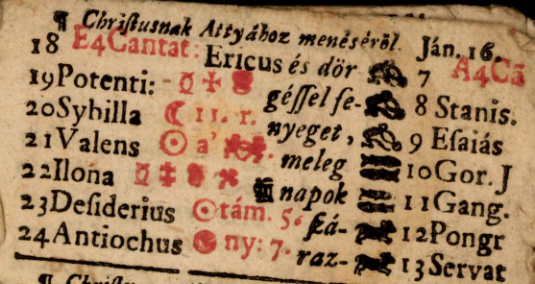 ¶ Chriſtusnak Attyához menéséröl. Ján. 16.
18 E4Cantat: Ericus és dör 7 A4Cā
19Potenti: - géſſel fe- 8 Stanis.
20Sybilla ☾ 11. r. nyeget, 9 Eſaiás
21Valens ☉ a' meleg 10Gor. J
22Ilona napok 11Gang.
23Deſiderius ☉tám. 5. ſzá- 12Pongr
24Antiochus ny: 7. raz- 13Servat